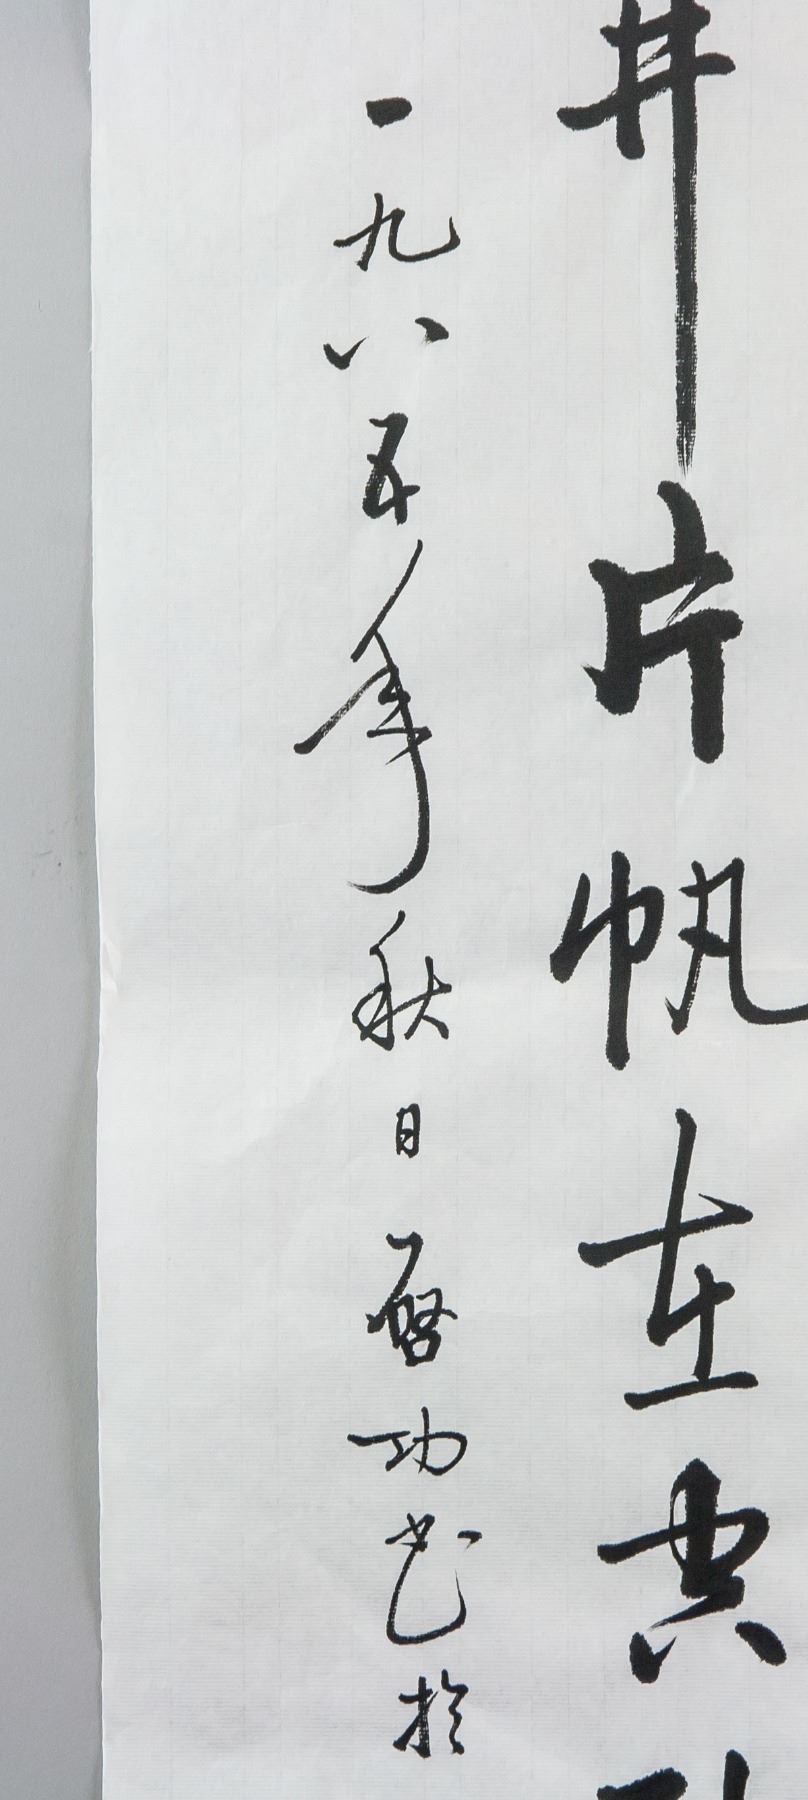 井片帆在
一九八五年秋日啓功书於